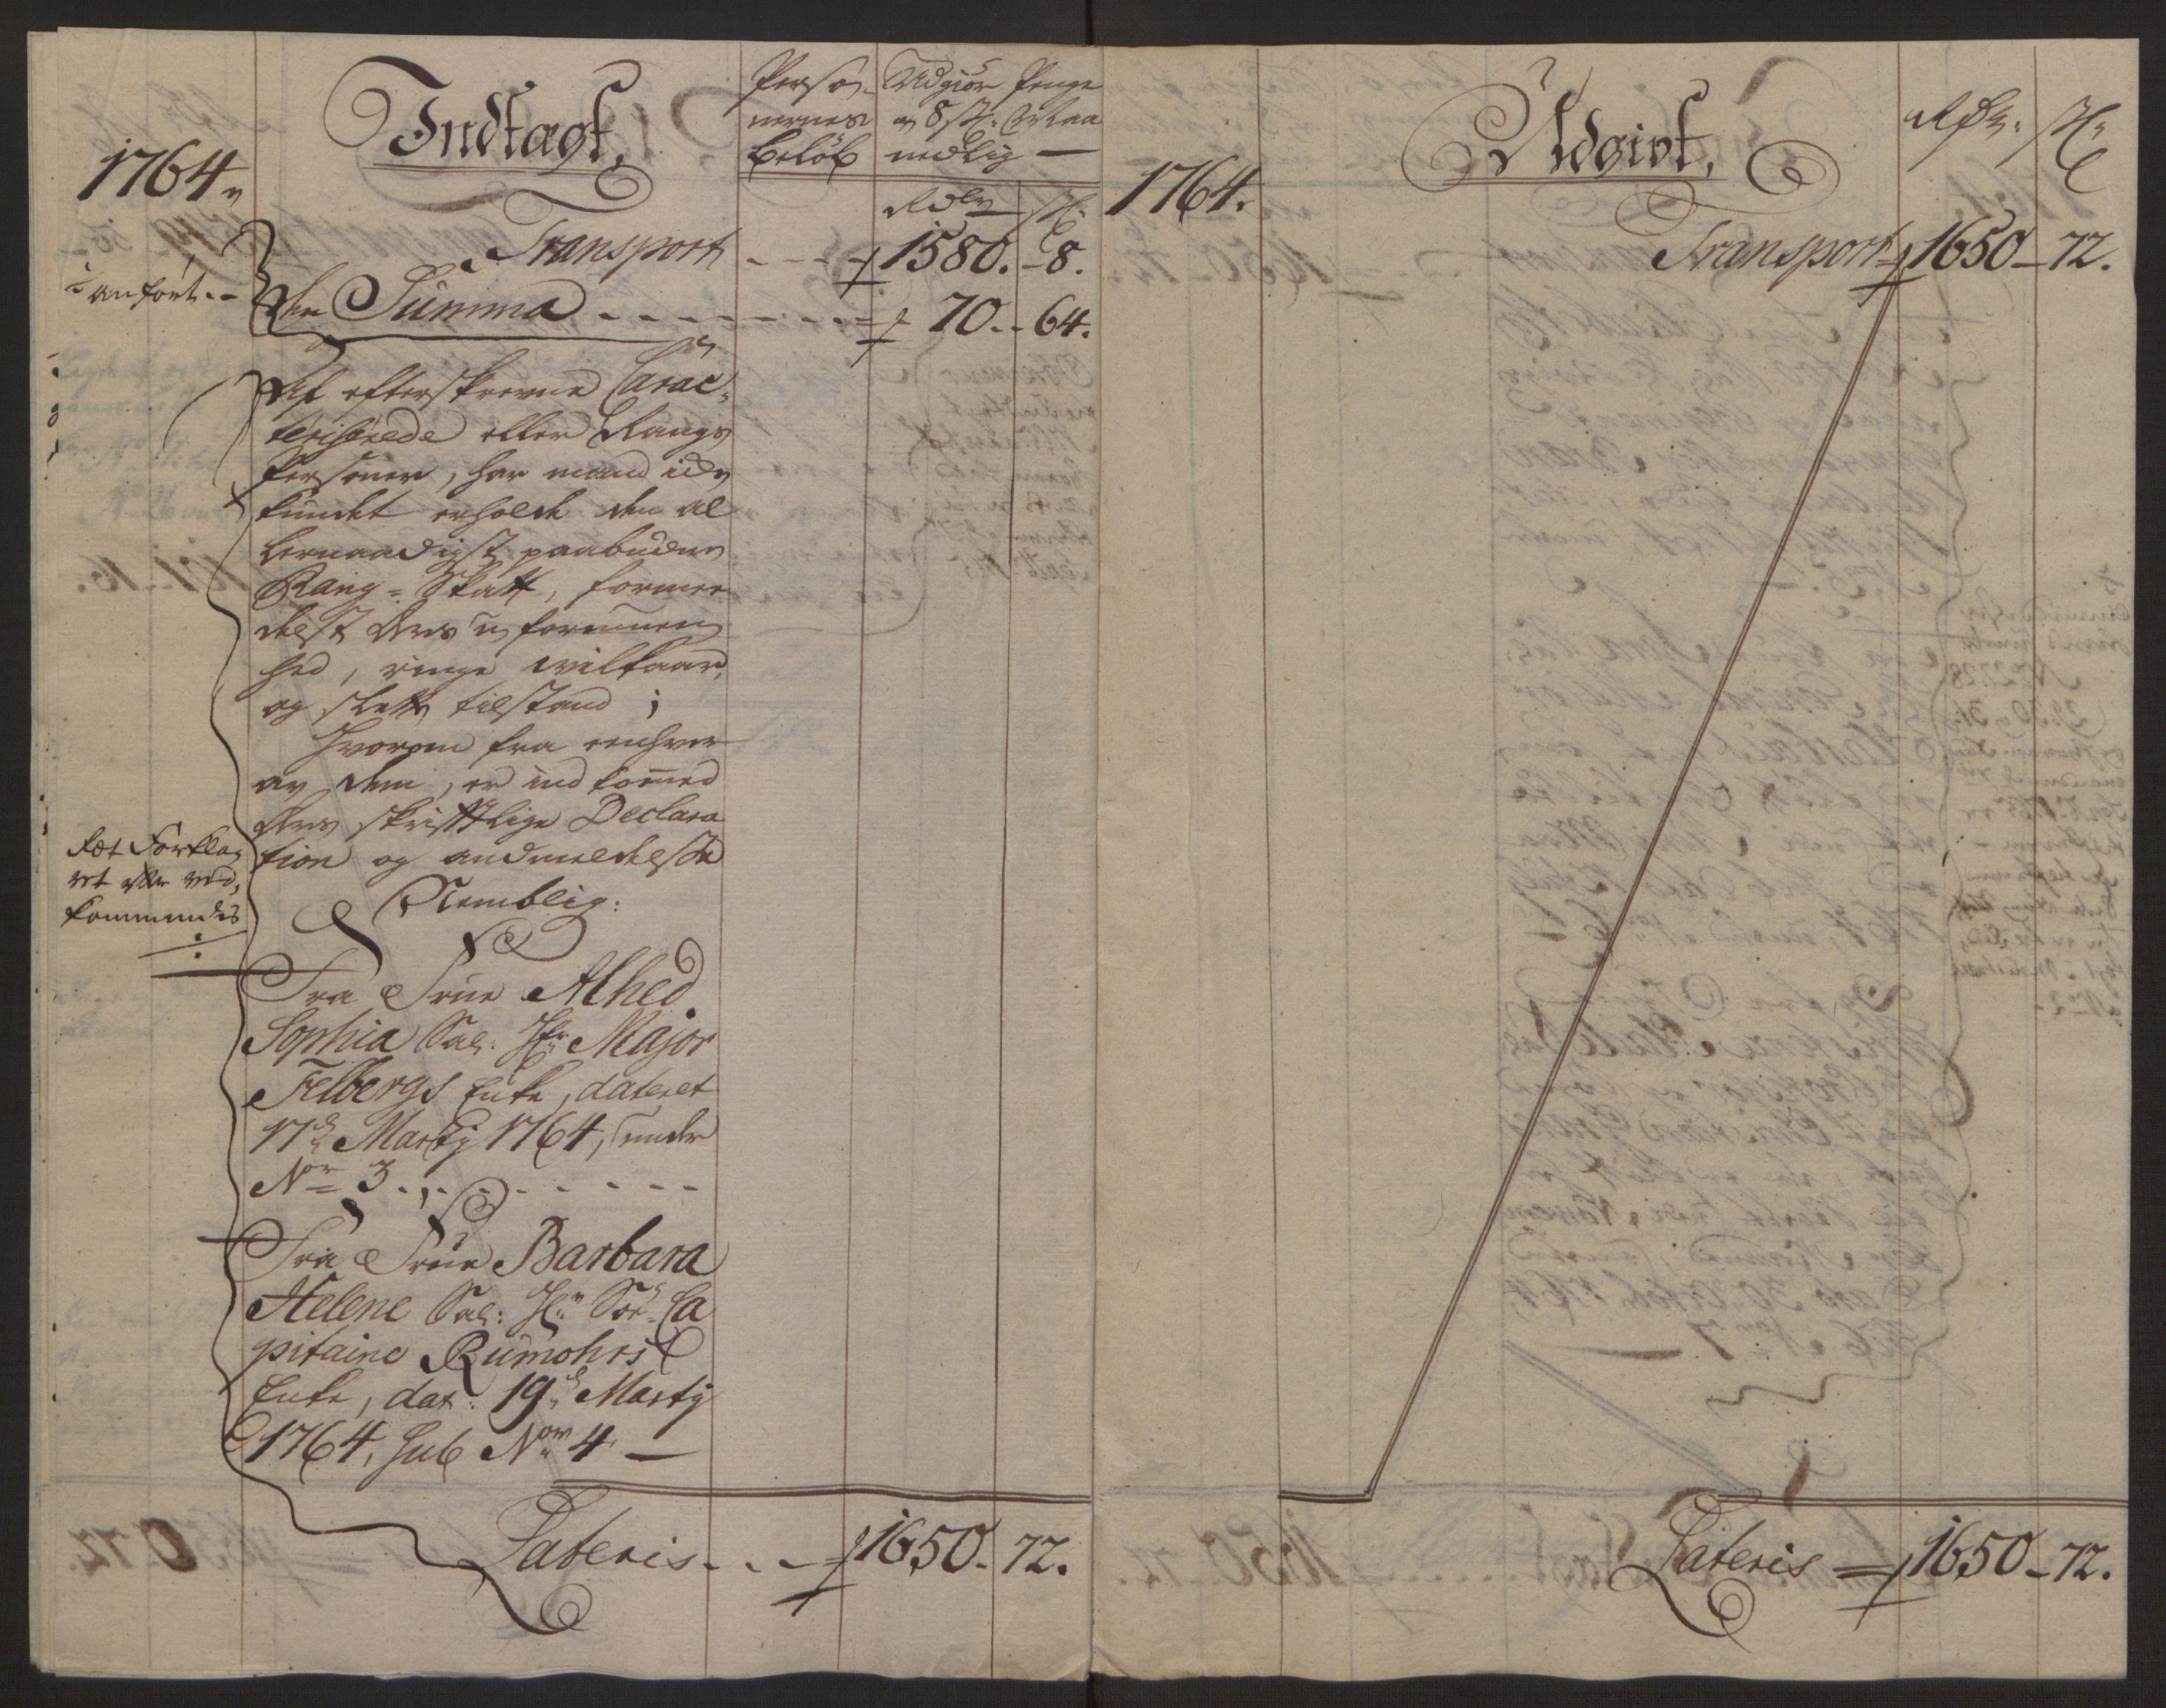 1764.
Indtægt,
Perso-
nernes
beløb
Udgiør Penge
a 8 sk. Maa
nedlig —
Rdlr sk.
Transport - - - 1580. - 8.
anført. -
den Summa - - - - - - - - 70 - 64.
Af efterskrevne Carac-
teriserede eller Rangs
Personer, har mand icke
kundet erholde den al
lernaadigst paabudne
Rang-Skatt, forme-
delst deres uformuen
hed, ringe vilkaar,
og slette tilstand ;
Hvorom fra eenhver
av dem, er indkommed
deres skrifftlige Declara
tion og andmeldelse
Nemblig:
ret Forkla,
ret ved,
kommendes
Fra Frue Alhed
Sophia Sal: Hr Major
Felbergs Enke, dateret
17d Martij 1764, under
Nor 3 - - - - - - - -
Fra Frue Barbara
Helene Sal: Hr Søe-Ca
pitaine Rumohrs
Enke, dat: 19d Martij
1764, sub Nor 4 —
Lateris - - - 1650 - 72.
1764.
Udgivt,
Rdr. sk.
Transport 1650 - 72.
Lateris 1650 - 72.